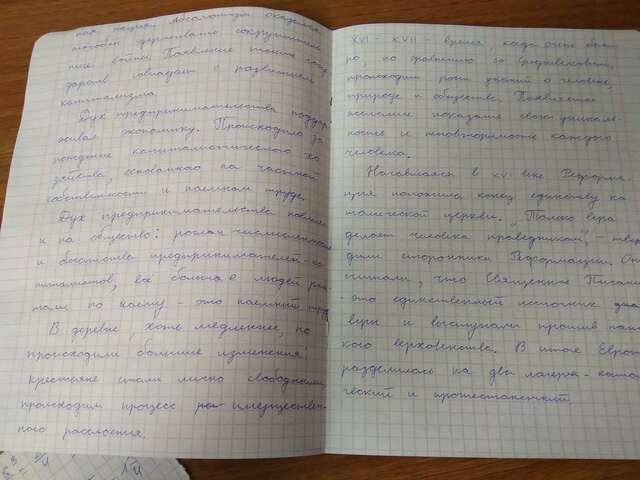 ная нация. Абсолютизм оказался
способен
ные войны. Появление таких госу
дарств совпадает с развитием
капитализма.
Дух предпринимательства поддер
живал экономику. Происходило за
рождение капиталистического хо
зяйства, основанного на частной
собственности и наемном труде.
Дух предпринимательства повлиял
и на общество: росла численность
и богатство предпринимателей-ка
питалистов, всё больше людей раб
тали по найму - это наемный труд
В деревне, хоть медленнее, но
происходили большие изменения
крестьяне стали лично свободными,
происходит процесс имуществен-
ного расслоения.
XVI - XVII - время, когда очень быст
ро, по сравнению со средневековьем,
происходит рост знаний о человеке,
природе и обществе. Появляется
желание показать свою уникаль-
ность и неповторимость каждого
человека.
Начавшаяся в XVI веке Реформа
ция положила конец единству ка
толической церкви. „Только вера
делает человека праведником" - твер
дили сторонники Реформации. Они
считали, что Священное Писани
- это единственный источник
веры и выступали против папс
кого верховенства. В итоге Европа
разделилась на два лагеря - католи
ческий и протестантский.